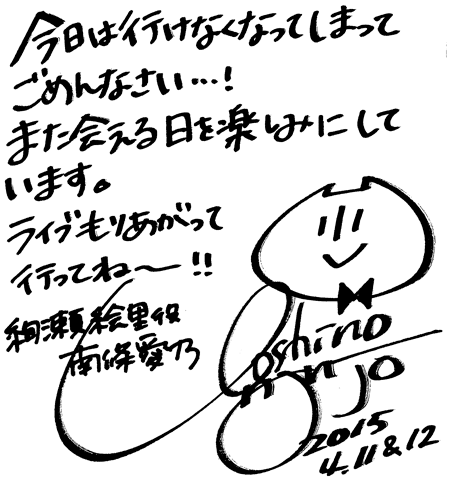 今日は行けなくなってしまって
ごめんなさい…!
また会える日を楽しみにして
います。
ライブもりあがって
行ってね〜!!
絢瀬絵里役
南條愛乃
Yoshino
nanjo
2015
4.11&12